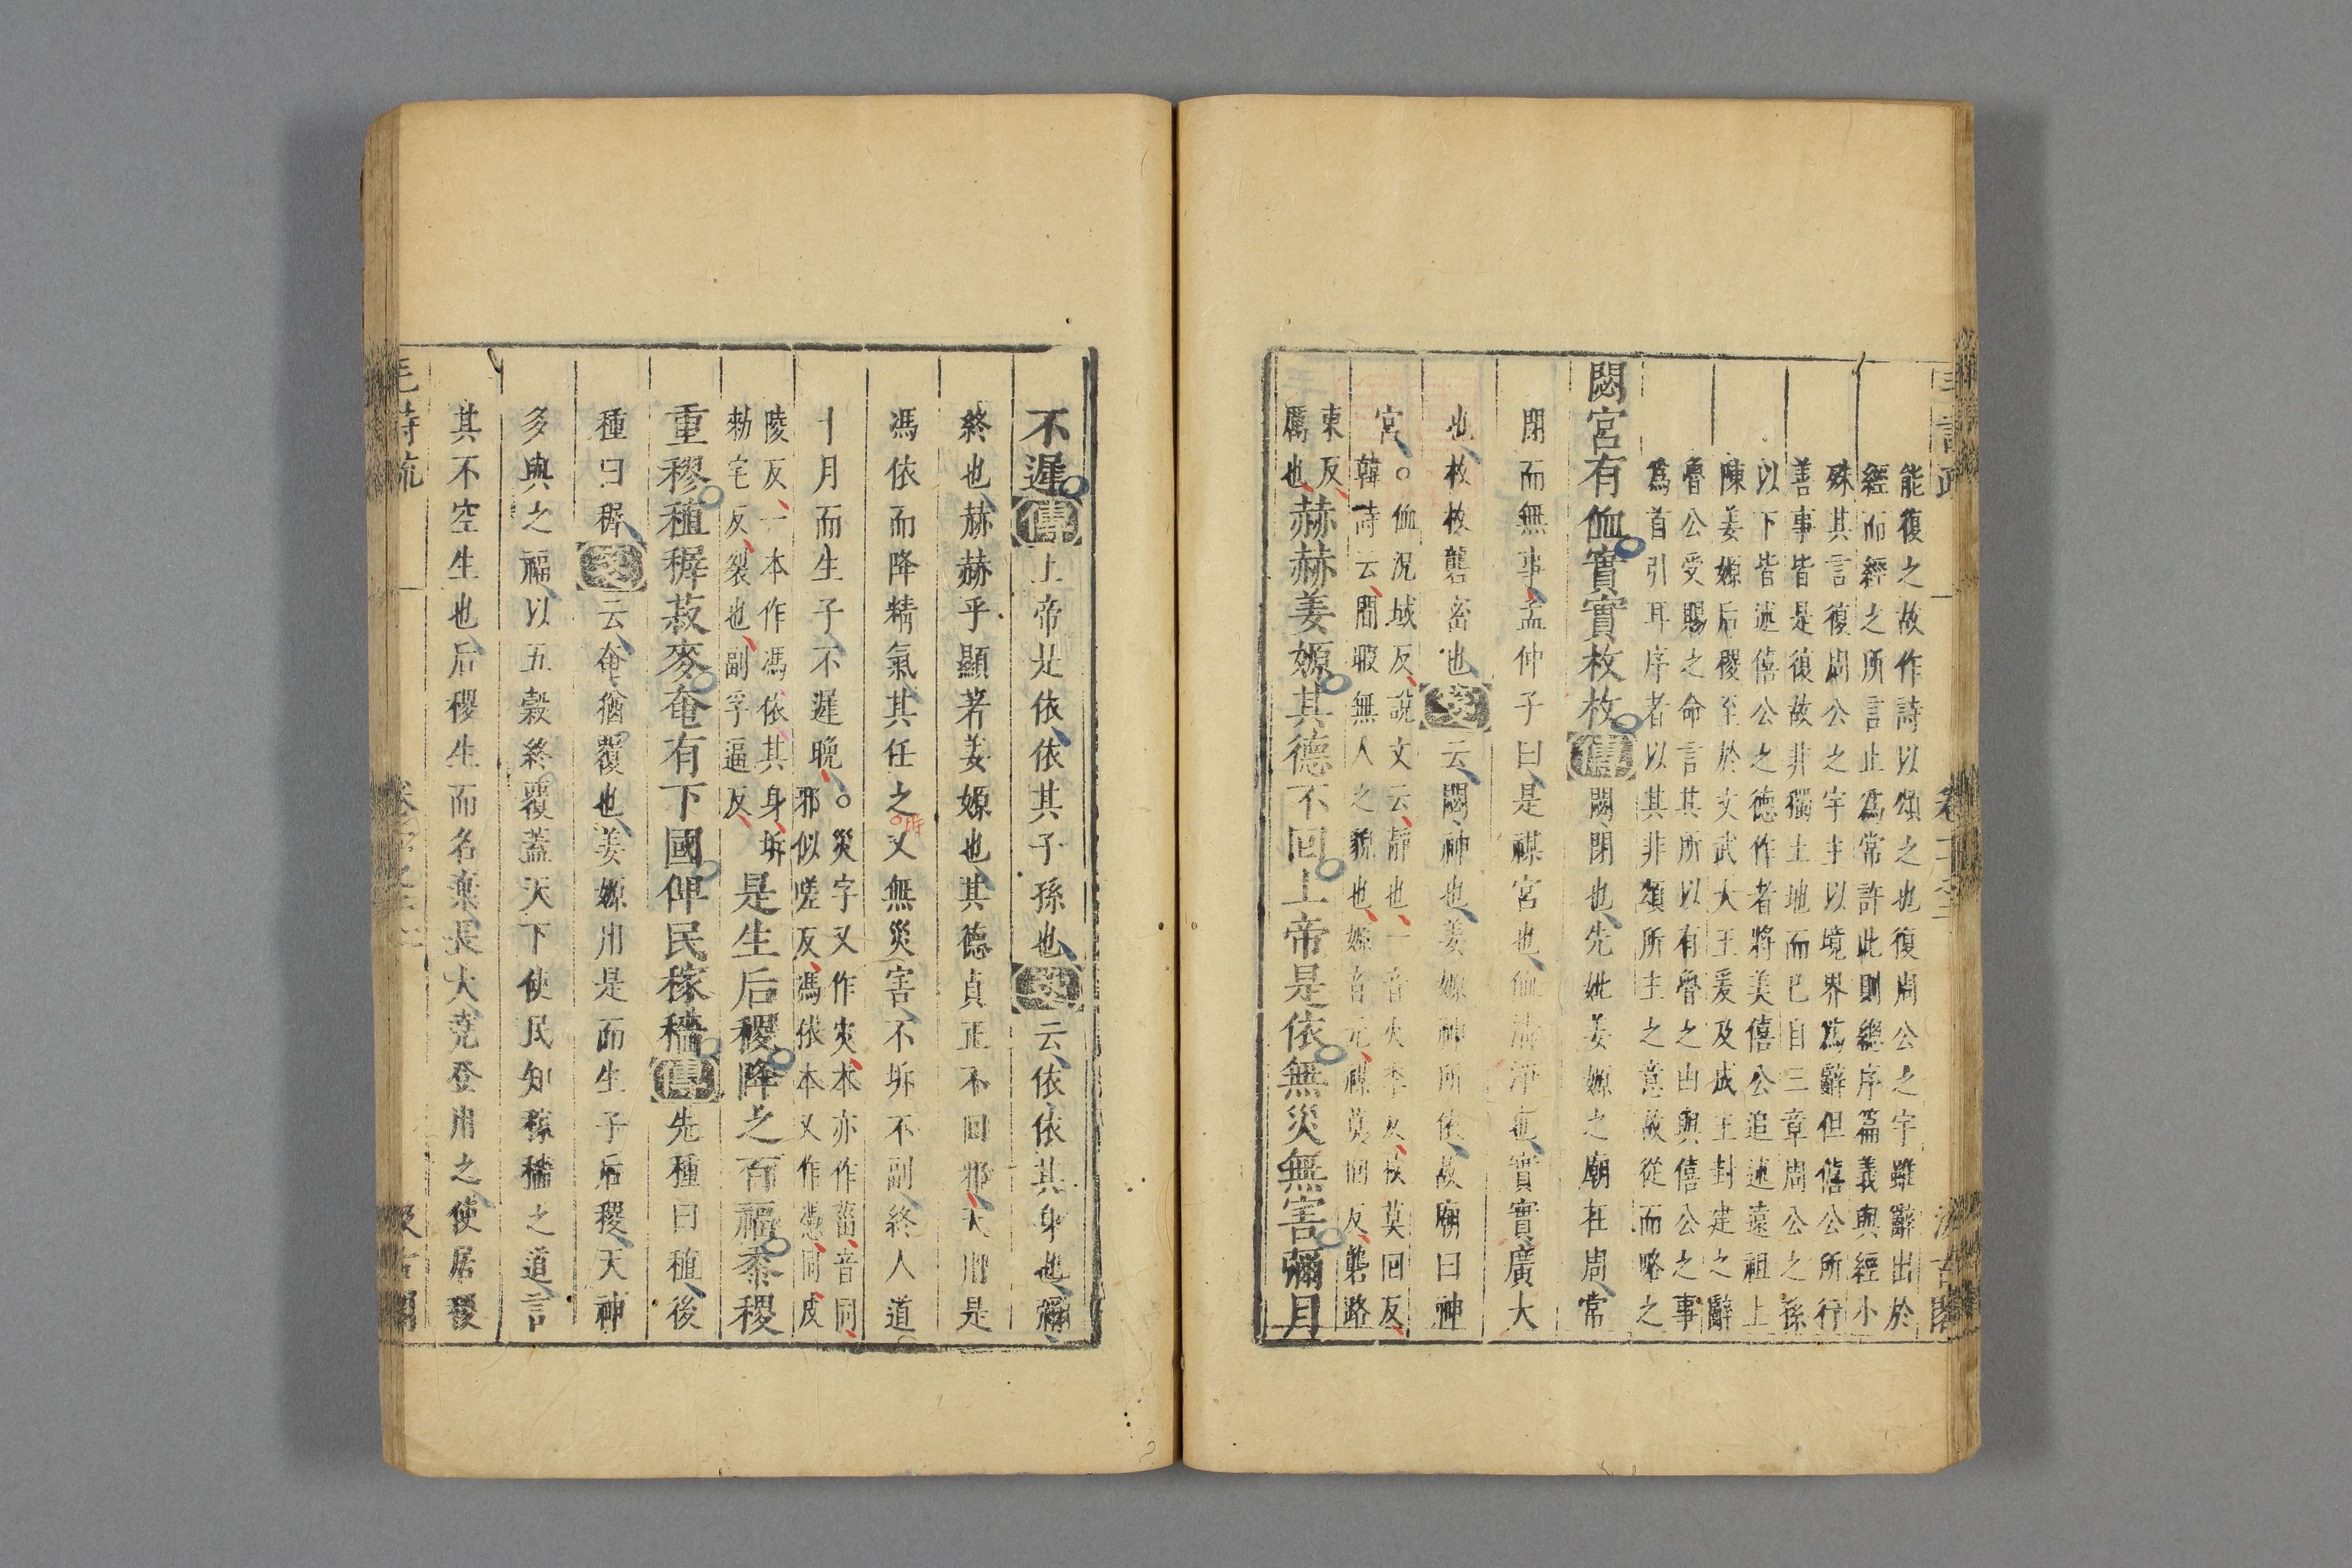 能復之故作詩以頌之也復周公之宇雖辭出於
經而經之所言止爲常許此則總序篇義與經小
殊其言復周公之宇主以境界爲辭但僖公所行
善事皆是復故非獨土地而已自三章周公之孫
以下皆述僖公之德作者將美僖公追述遠祖上
陳姜嫄后稷至於文武大王爰及成王封建之辭
魯公受賜之命言其所以有魯之由與僖公之事
爲首引耳序者以其非頌所主之意故從而略之
閟宮有侐實實枚枚傳閟閉也先妣姜嫄之廟在周常
閉而無事孟仲子曰是禖宮也侐清淨也實實廣大
也枚枚礱密也箋云閟神也姜嫄神所依故廟曰神
宮○侐況域反說文云靜也一音火季反枚莫回反
韓詩云閒暇無人之貌也嫄音元禖莫回反礱路
東反
厲也赫赫姜嫄其德不回上帝是依無災無害彌月
不遲傳上帝是依依其子孫也箋云依依其身也彌
終也赫赫乎顯著姜嫄也其德貞正不回邪天用是
馮依而降精氣其任之又無災害不坼不副終人道
十月而生子不遲晚○災字又作烖本亦作菑音同
邪似嗟反馮依本又作憑同皮
陵反一本作馮依其身坼
勑宅反裂也副孚逼反是生后稷降之百福黍稷
重穋稙穉菽麥奄有下國俾民稼穡傳先種曰稙後
種曰穉箋云奄猶覆也姜嫄用是而生子后稷天神
多與之福以五穀終覆蓋天下使民知稼穡之道言
其不空生也后稷生而名棄長大堯登用之使居稷
毛詩疏